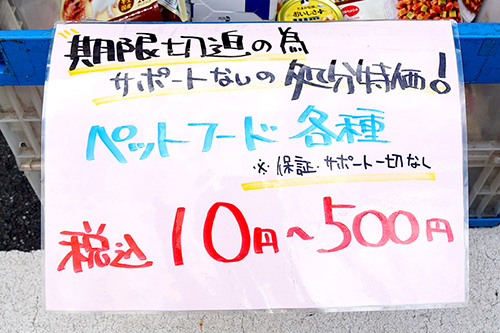 おいしさ
期限切迫の為
サポートなしの処分特価!
ペットフード 各種
※保証・サポート一切なし
税込10円~500円